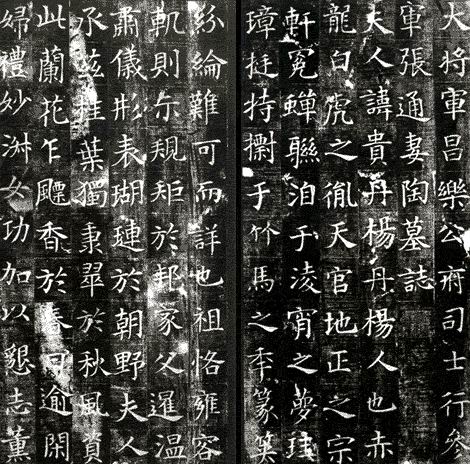 大將軍昌樂公府司士行參
軍張通妻陶墓誌
夫人諱貴丹楊丹楊人也赤
龍白虎之胤天官地正之宗
軒冕蟬聯洎于淩宵之夢珪
璋挺持于竹馬之秊篆籀
紛綸難可而詳也祖恪雍容
軌則尒規矩於邦家父暹温
肅儀形表瑚璉於朝野夫人
承茲桂葉獨秉翠於秋風資
此蘭花乍飄香於春日逾閑
婦禮妙女功加以懇志薰